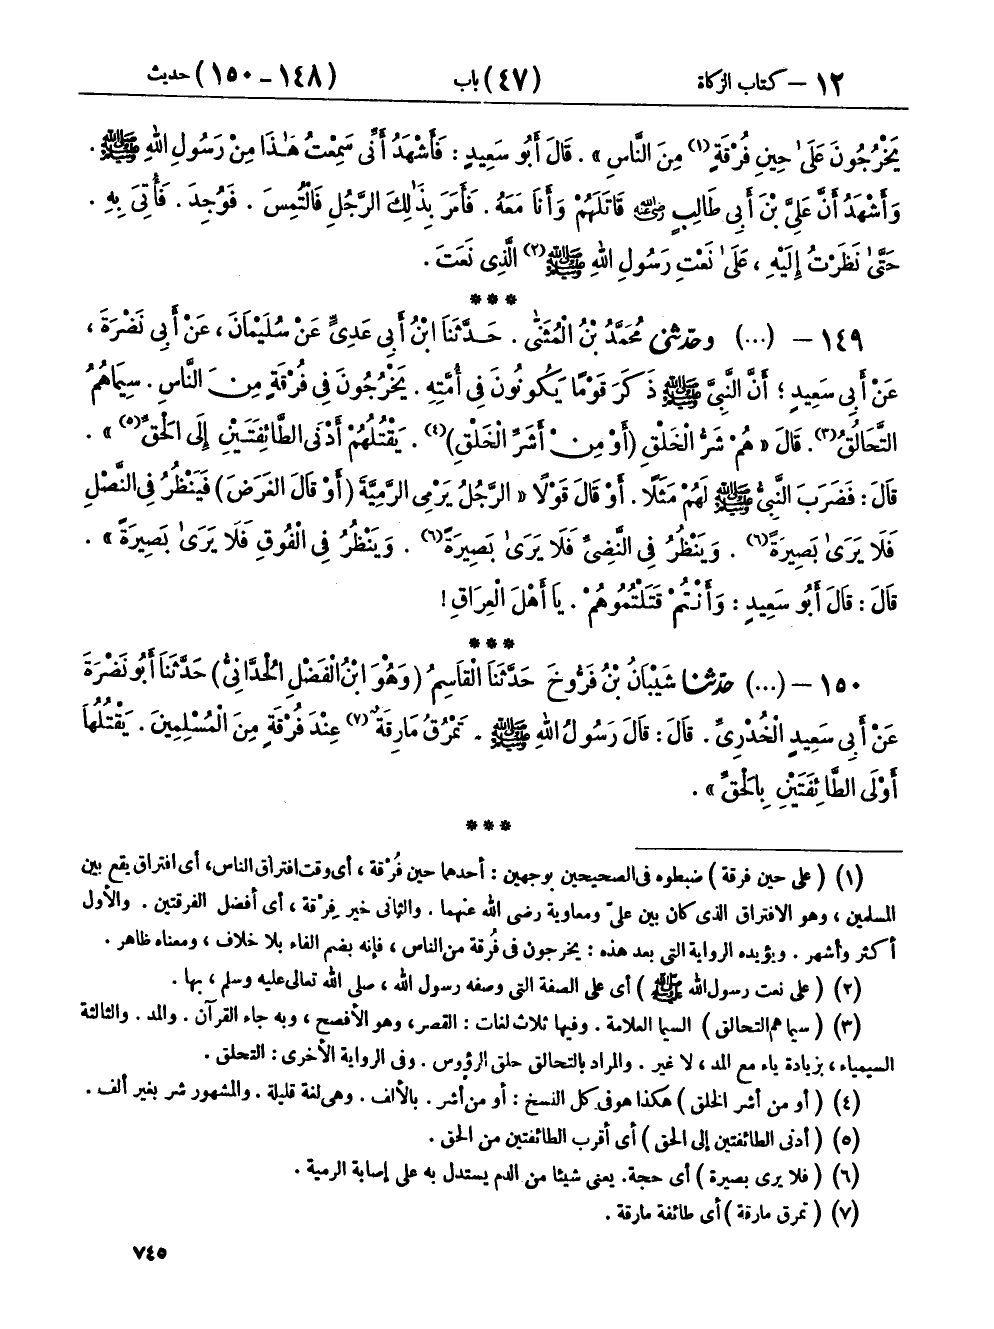 ١٢ – كتاب الزكاة (٤٧) باب (١٤٨ – ١٥٠) حديث
يَخْرُجُونَ عَلَىٰ حِينِ فُرْقَةٍ (١) مِنَ النَّاسِ » . قَالَ أَبُو سَعِيدٍ : فَأَشْهَدُ أَنِّى سَمِعْتُ هَٰذَا مِنْ رَسُولِ اللهِ ﷺ .
وَأَشْهَدُ أَنَّ عَلِيَّ بْنَ أَبِى طَالِبٍ رضي الله عنه قَاتَلَهُمْ وَأَنَا مَعَهُ . فَأَمَرَ بِذَٰلِكَ الرَّجُلِ فَالْتُمِسَ . فَوُجِدَ . فَأُتِىَ بِهِ .
حَتَّىٰ نَظَرْتُ إِلَيْهِ ، عَلَىٰ نَعْتِ رَسُولِ اللهِ ﷺ (٢) الَّذِى نَعَتَ .
***
١٤٩ – (...) وحدثنى مُحَمَّدُ بْنُ الْمُثَنَّىٰ . حَدَّثَنَا ابْنُ أَبِى عَدِىٍّ عَنْ سُلَيْمَانَ ، عَنْ أَبِى نَضْرَةَ ،
عَنْ أَبِى سَعِيدٍ ؛ أَنَّ النَّبِىَّ ﷺ ذَكَرَ قَوْمًا يَكُونُونَ فِى أُمَّتِهِ . يَخْرُجُونَ فِى فُرْقَةٍ مِنَ النَّاسِ . سِيمَاهُمُ
التَّحَالُقُ (٣) . قَالَ « هُمْ شَرُّ الْخَلْقِ (أَوْ مِنْ أَشَرِّ الْخَلْقِ) (٤) . يَقْتُلُهُمْ أَدْنَى الطَّائِفَتَيْنِ إِلَى الْحَقِّ (٥) » .
قَالَ : فَضَرَبَ النَّبِىُّ ﷺ لَهُمْ مَثَلًا . أَوْ قَالَ قَوْلًا « الرَّجُلُ يَرْمِى الرَّمِيَّةَ (أَوْ قَالَ الْغَرَضَ) فَيَنْظُرُ فِى النَّصْلِ
فَلَا يَرَىٰ بَصِيرَةً (٦) . وَيَنْظُرُ فِى النَّضِىِّ فَلَا يَرَىٰ بَصِيرَةً (٦) . وَيَنْظُرُ فِى الْفُوقِ فَلَا يَرَىٰ بَصِيرَةً » .
قَالَ : قَالَ أَبُو سَعِيدٍ : وَأَنْتُمْ قَتَلْتُمُوهُمْ . يَا أَهْلَ الْعِرَاقِ !
***
١٥٠ – (...) حدثنا شَيْبَانُ بْنُ فَرُّوخَ حَدَّثَنَا الْقَاسِمُ (وَهُوَ ابْنُ الْفَضْلِ الْحُدَّانِىُّ) حَدَّثَنَا أَبُو نَضْرَةَ
عَنْ أَبِى سَعِيدٍ الْخُدْرِىِّ . قَالَ : قَالَ رَسُولُ اللهِ ﷺ . تَمْرُقُ مَارِقَةٌ (٧) عِنْدَ فُرْقَةٍ مِنَ الْمُسْلِمِينَ . يَقْتُلُهَا
أَوْلَى الطَّائِفَتَيْنِ بِالْحَقِّ » .
***
(١) ( على حين فرقة ) ضبطوه فى الصحيحين بوجهين : أحدهما حين فُرْقة ، أى وقت افتراق الناس ، أى افتراق يقع بين
المسلمين ، وهو الافتراق الذى كان بين علىّ ومعاوية رضى الله عنهما . والثانى خير فِرْقة ، أى أفضل الفرقتين . والأول
أكثر وأشهر . ويؤيده الرواية التى بعد هذه : يخرجون فى فُرقة من الناس ، فإنه بضم الفاء بلا خلاف ، ومعناه ظاهر .
(٢) ( على نعت رسول الله ﷺ ) أى على الصفة التى وصفه رسول الله ، صلى الله تعالى عليه وسلم ، بها .
(٣) ( سيماهم التحالق ) السيما العلامة . وفيها ثلاث لغات : القصر ، وهو الأفصح ، وبه جاء القرآن . والمد . والثالثة
السيمياء ، بزيادة ياء مع المد ، لا غير . والمراد بالتحالق حلق الرؤوس . وفى الرواية الأخرى : التحلق .
(٤) ( أو من أشر الخلق ) هكذا هو فى كل النسخ : أو من أشر . بالألف . وهى لغة قليلة . والمشهور شر بغير ألف .
(٥) ( أدنى الطائفتين إلى الحق ) أى أقرب الطائفتين من الحق .
(٦) ( فلا يرى بصيرة ) أى حجة . يعنى شيئا من الدم يستدل به على إصابة الرمية .
(٧) ( تمرق مارقة ) أى طائفة مارقة .
٧٤٥